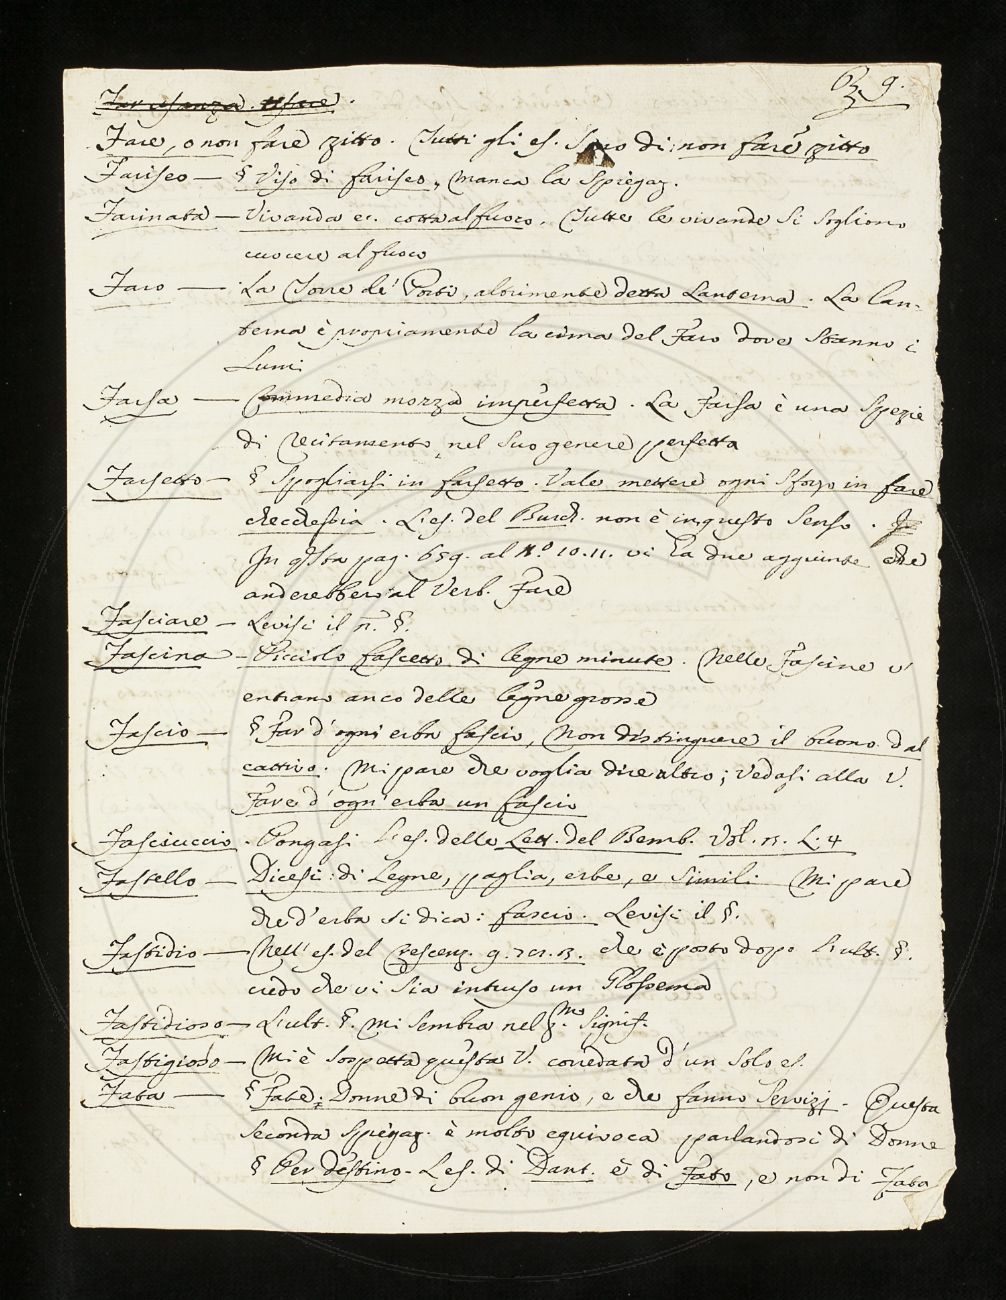 Far usanza. usare.
B 9.
Fare, o non fare zitto. Tutti gli es. sono di: non fare zitto
Fariseo — § Viso di fariseo, manca la spiegaz.
Farinata — Vivanda ec. cotta al fuoco. Tutte le vivande si sogliono
cuocere al fuoco
Faro — La Torre de' Porti, altrimente detta Lanterna. La lan-
terna è propriamente la cima del Faro dove stanno i
Lumi
Farsa — Commedia mozza imperfetta. La Farsa è una spezie
di recitamento nel suo genere perfetta
Farsetto — § Spogliarsi in farsetto. Vale mettere ogni sforzo in fare
checchessia. L'es. del Burch. non è in questo senso.
In qsta pag. 659. al N.º 10. 11. vi ha due aggiunte che
anderebbero al Verb. Fare
Fasciare — Levisi il n. §.
Fascina — Picciolo fascetto di legne minute. Nelle Fascine v'
entrano anco delle legne grosse
Fascio — § Far d'ogni erba fascio, Non distinguere il buono dal
cattivo. Mi pare che voglia dire altro; vedasi alla V.
Fare d'ogn'erba un fascio
Fasciuccio. Pongasi l'es. delle Lett. del Bemb. Vol. n. L. 4
Fastello — Dicesi di Legne, paglia, erbe, e simili. Mi pare
che d'erba si dica: fascio. Levisi il §.
Fastidio — Nell'es. del Crescenz. 9. che è posto dopo l'ult. §.
credo che vi sia intruso un Glossema
Fastidioso — L'ult. §. mi sembra nel p.mo signif.
Fastigioso — Mi è sospetta questa V. corredata d'un solo es.
Fata — § Fate: Donne di buon genio, e che fanno servizj. Questa
seconda spiegaz. è molto equivoca parlandosi di Donne
§ Per destino. L'es. di Dant. è di Fato, e non di Fata